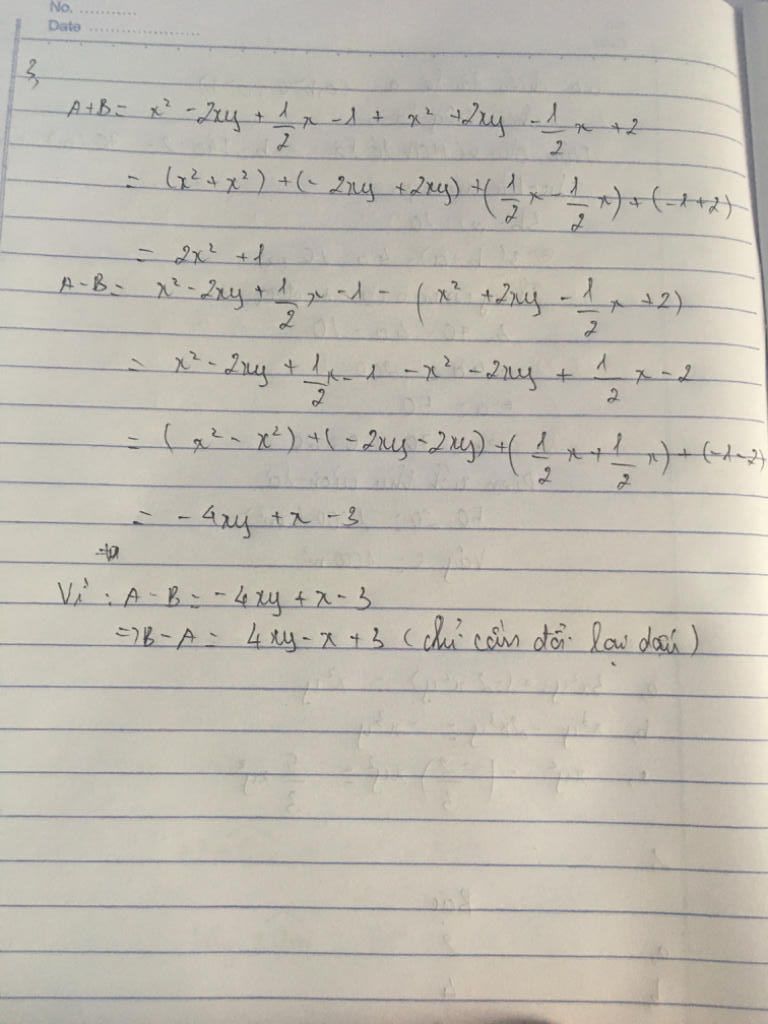 No. ...........
Date ......................
3,
A+B = x² - 2xy + 1/2 x - 1 + x² + 2xy - 1/2 x + 2
= (x² + x²) + (- 2xy + 2xy) + (1/2 x - 1/2 x) + (-1+2)
= 2x² + 1
A-B = x² - 2xy + 1/2 x - 1 - (x² + 2xy - 1/2 x + 2)
= x² - 2xy + 1/2 x - 1 - x² - 2xy + 1/2 x - 2
= (x² - x²) + (- 2xy - 2xy) + (1/2 x + 1/2 x) + (-1-2)
= - 4xy + x - 3
Vì : A - B = - 4xy + x - 3
=> B - A = 4xy - x + 3 (chỉ cần đổi lại dấu)